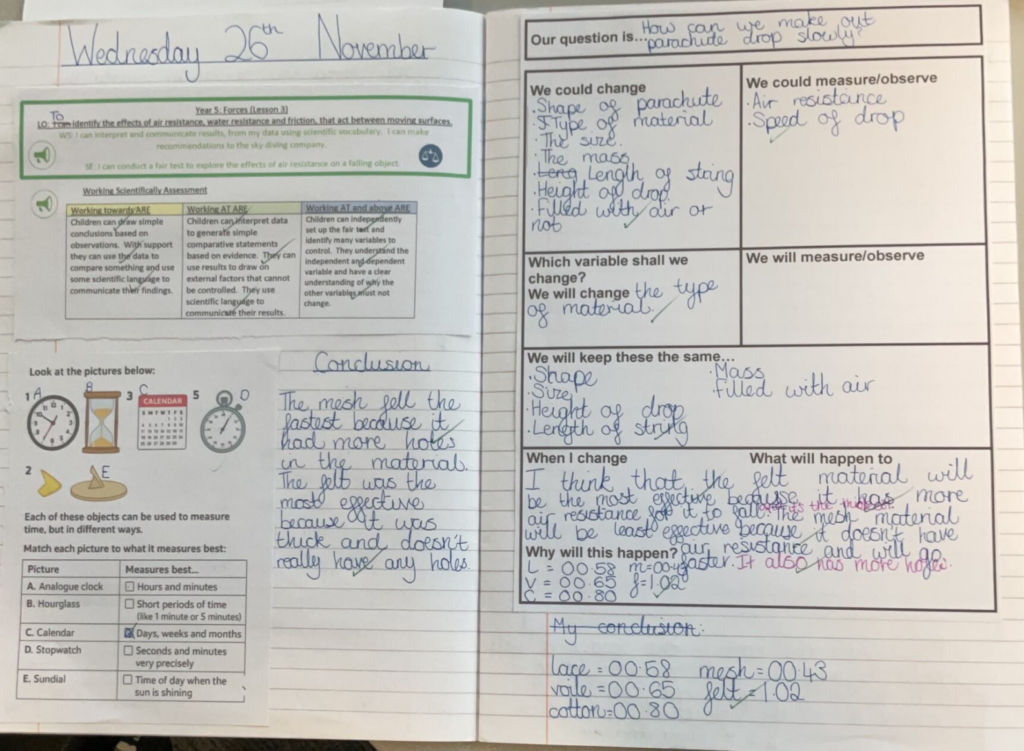 Wednesday 26th November
Year 5: Forces (Lesson 3)
To
LO: I can identify the effects of air resistance, water resistance and friction, that act between moving surfaces.
WS: I can interpret and communicate results, from my data using scientific vocabulary. I can make
recommendations to the sky diving company.
SE: I can conduct a fair test to explore the effects of air resistance on a falling object.
Working Scientifically Assessment
Working towards ARE
Children can draw simple
conclusions based on
observations. With support
they can use the data to
compare something and use
some scientific language to
communicate their findings.
Working AT ARE
Children can interpret data
to generate simple
comparative statements
based on evidence. They can
use results to draw on
external factors that cannot
be controlled. They use
scientific language to
communicate their results.
Working AT and above ARE
Children can independently
set up the fair test and
identify many variables to
control. They understand the
independent and dependent
variable and have a clear
understanding of why the
other variables must not
change.
Look at the pictures below:
1 A
B
3 C
CALENDAR
5 D
2
E
Each of these objects can be used to measure
time, but in different ways.
Match each picture to what it measures best:
Picture Measures best...
A. Analogue clock Hours and minutes
B. Hourglass Short periods of time
(like 1 minute or 5 minutes)
C. Calendar Days, weeks and months
D. Stopwatch Seconds and minutes
very precisely
E. Sundial Time of day when the
sun is shining
Conclusion
The mesh fell the
fastest because it
had more holes
in the material.
The felt was the
most effective
because it was
thick and doesn't
really have any holes.
Our question is... How can we make out
parachute drop slowly?
We could change
·Shape of parachute
·Type of material
·The size.
·The mass
·Leng Length of string
·Height of drop
·Filled with air or
not
We could measure/observe
·Air resistance
·Speed of drop
Which variable shall we
change?
We will change the type
of material.
We will measure/observe
We will keep these the same...
·Shape
·Size
·Height of drop
·Length of string
·Mass
filled with air
When I change What will happen to
I think that the felt material will
be the most effective because it has more
air resistance for it to fall. the mesh material
will be least effective because it doesn't have
Why will this happen? air resistance and will go
faster. It also has more holes.
L = 00.58 m=00.43
V = 00.65 f=1.02
C = 00.80
My conclusion:
lace = 00.58 mesh=00.43
voile = 00.65 felt=1.02
cotton=00.80